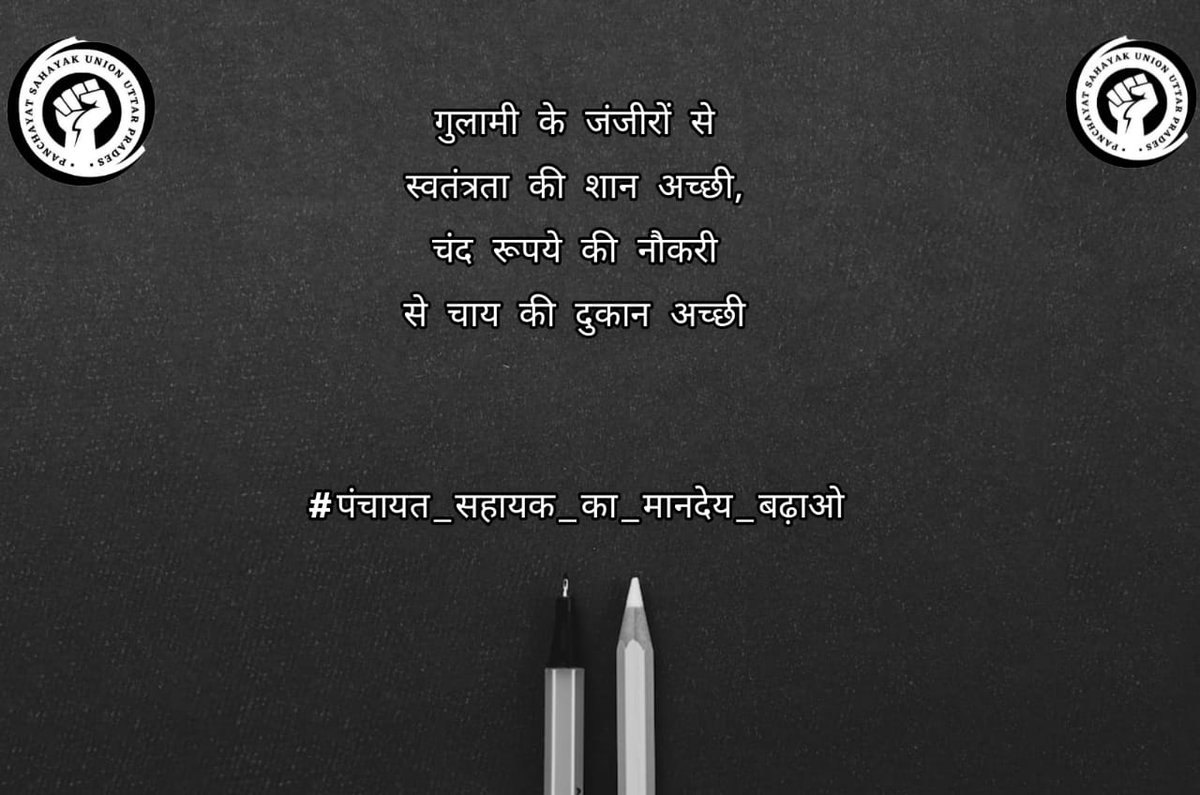 PANCHAYAT SAHAYAK UNION UTTAR PRADES
PANCHAYAT SAHAYAK UNION UTTAR PRADES
गुलामी के जंजीरों से
स्वतंत्रता की शान अच्छी,
चंद रूपये की नौकरी
से चाय की दुकान अच्छी
#पंचायत_सहायक_का_मानदेय_बढ़ाओ